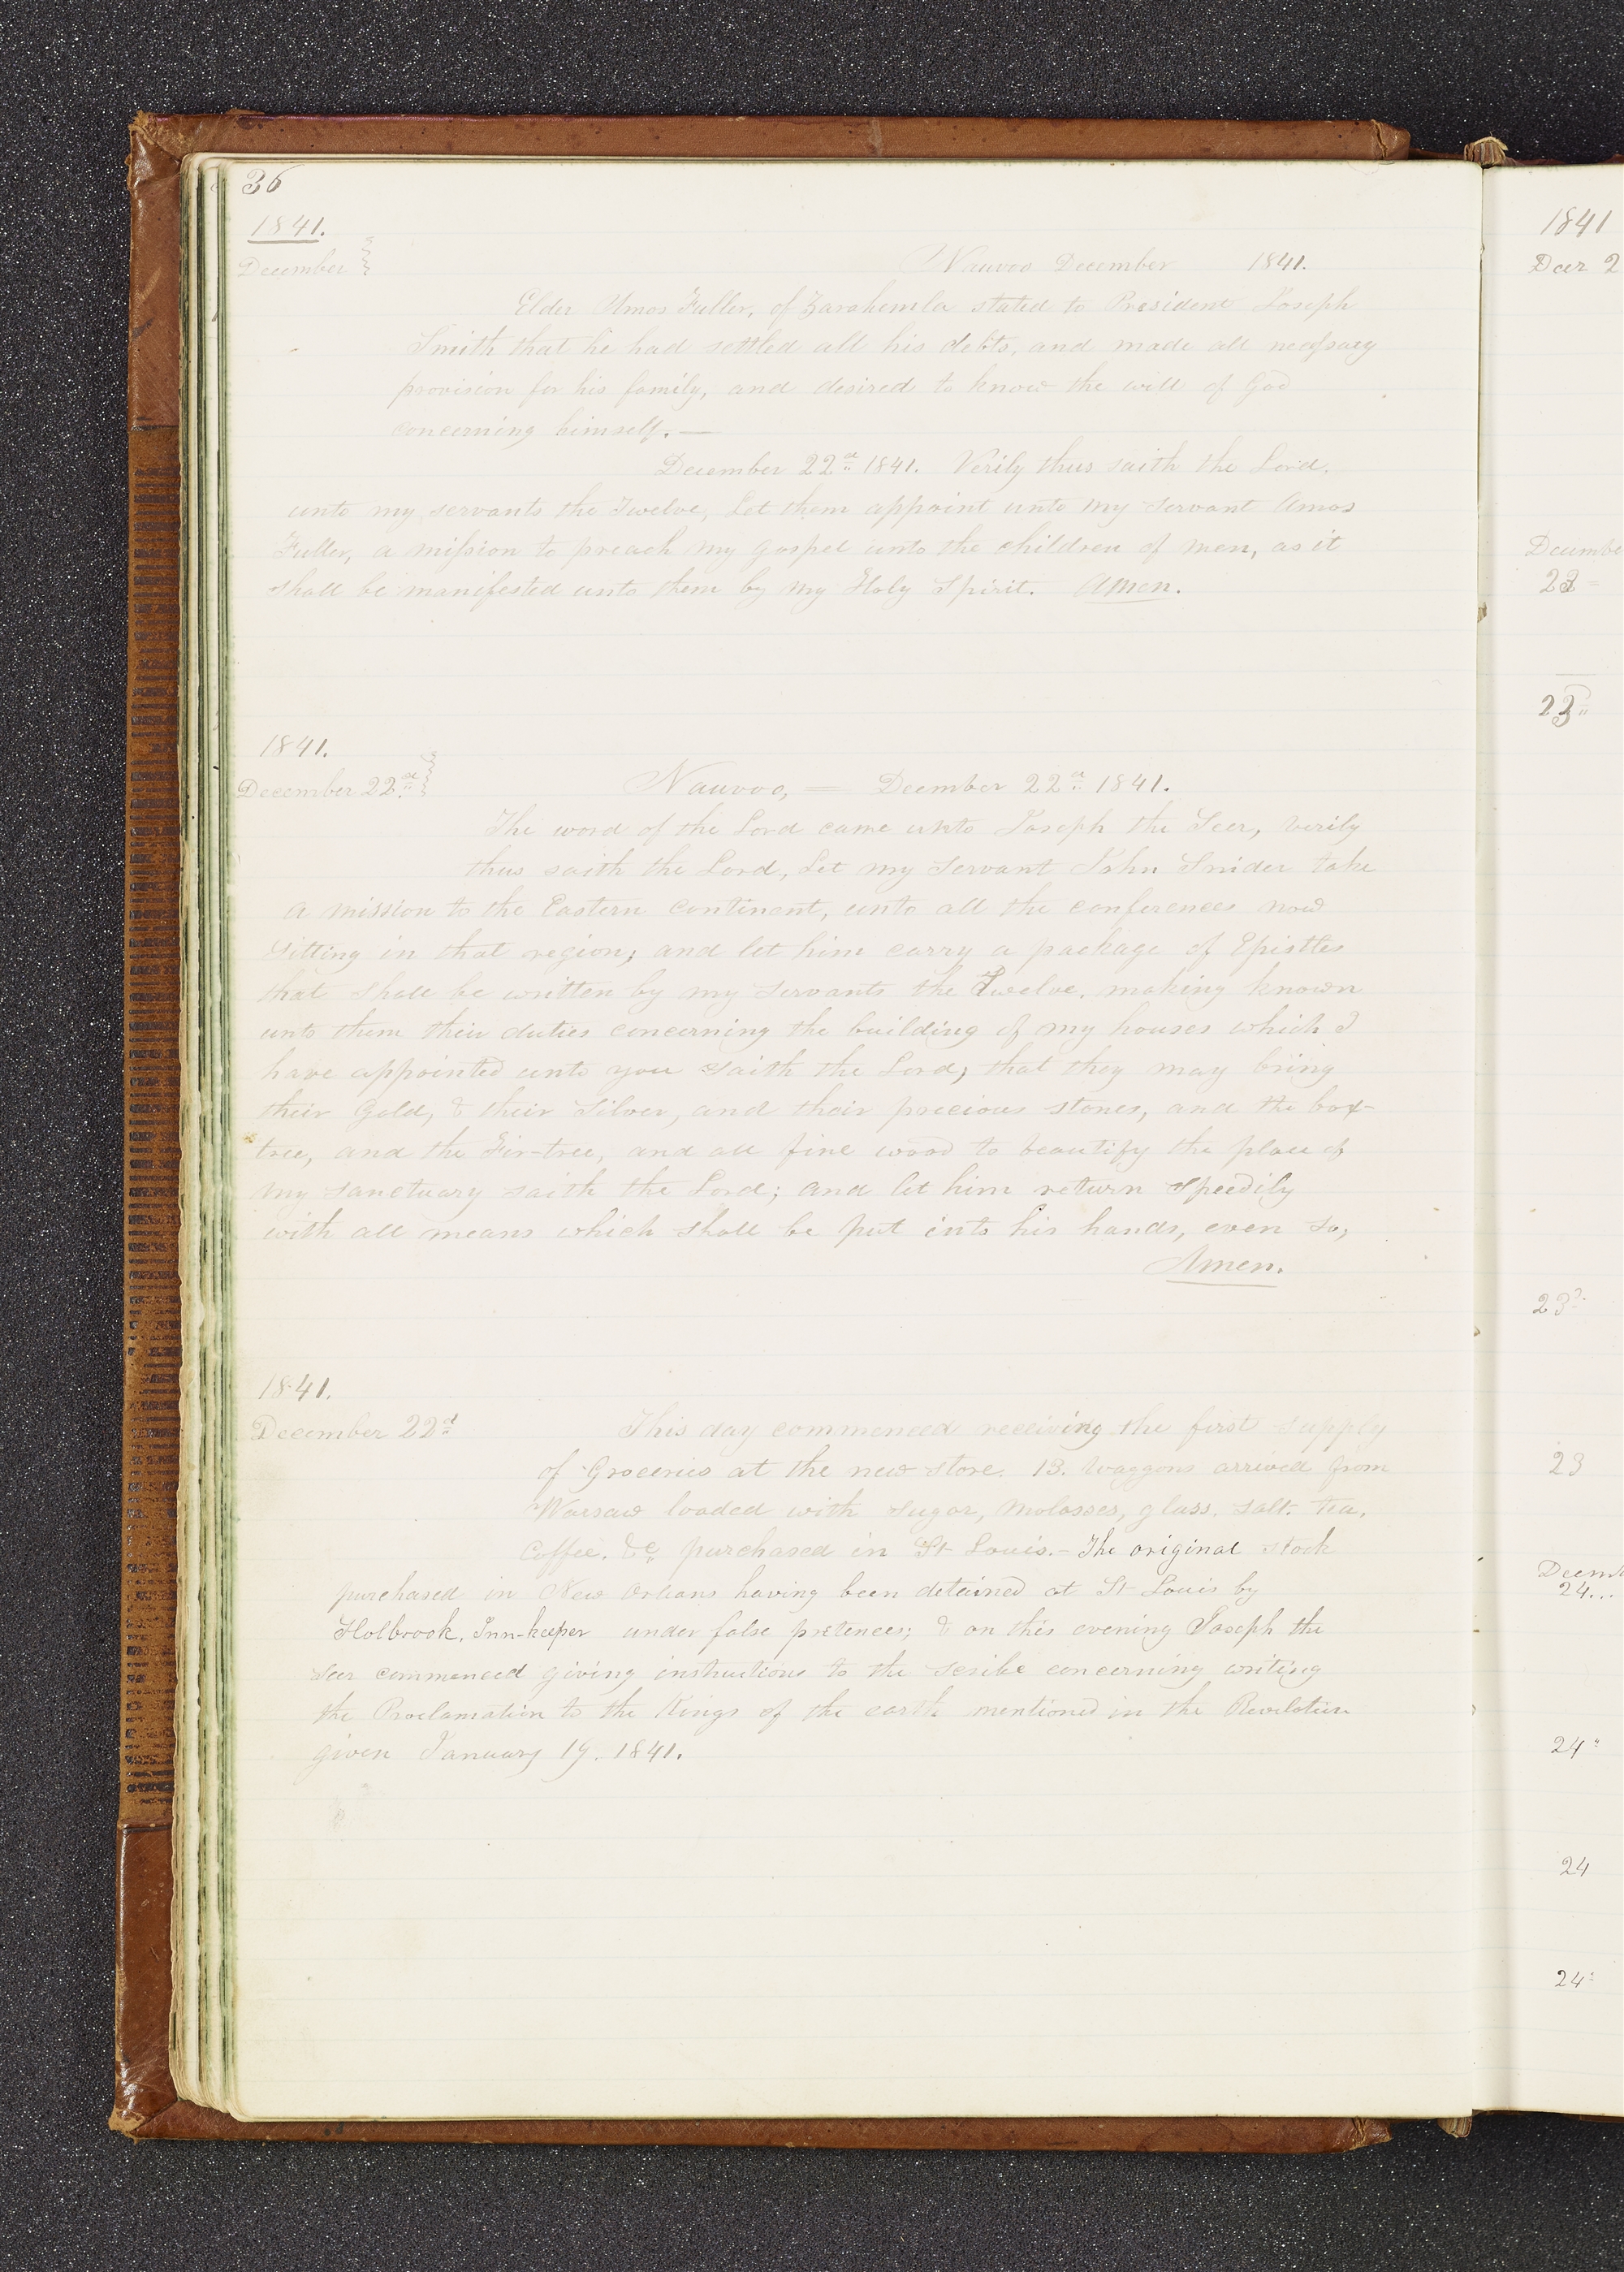 36
1841.
December
Nauvoo December 1841.
Elder Amos Fuller, of Zarahemla stated to President Joseph
Smith that he had settled all his debts, and made all necessary
provision for his family, and desired to know the will of God
concerning himself. —
December 22d 1841. Verily thus saith the Lord,
unto my servants the Twelve, Let them appoint unto my servant Amos
Fuller, a mission to preach my gospel unto the children of men, as it
shall be manifested unto them by my Holy Spirit. Amen.
1841.
December 22d
Nauvoo, = December 22d 1841.
The word of the Lord came unto Joseph the Seer, verily
thus saith the Lord, Let my servant John Snider take
a mission to the Eastern continent, unto all the conferences now
sitting in that region; and let him carry a package of Epistles
that shall be written by my servants the Twelve, making known
unto them their duties concerning the building of my houses which I
have appointed unto you saith the Lord, that they may bring
their Gold, & their Silver, and their precious stones, and the box-
tree, and the Fir-tree, and all fine wood to beautify the place of
my sanctuary saith the Lord; and let him return speedily
with all means which shall be put into his hands, even so,
Amen.
1841.
December 22d
This day commenced receiving the first supply
of Groceries at the new store. 13. waggons arrived from
Warsaw loaded with sugar, molasses, glass, salt, tea,
coffee, &c purchased in St Louis. - The original stock
purchased in New Orleans having been detained at St Louis by
Holbrook, Inn-keeper under false pretences; & on this evening Joseph the
Seer commenced giving instructions to the scribe concerning writing
the Proclamation to the Kings of the earth mentioned in the Revelation
given January 19. 1841.
1841
Decr 2
Decembe
23
23
23
23
Decem
24
24
24
24